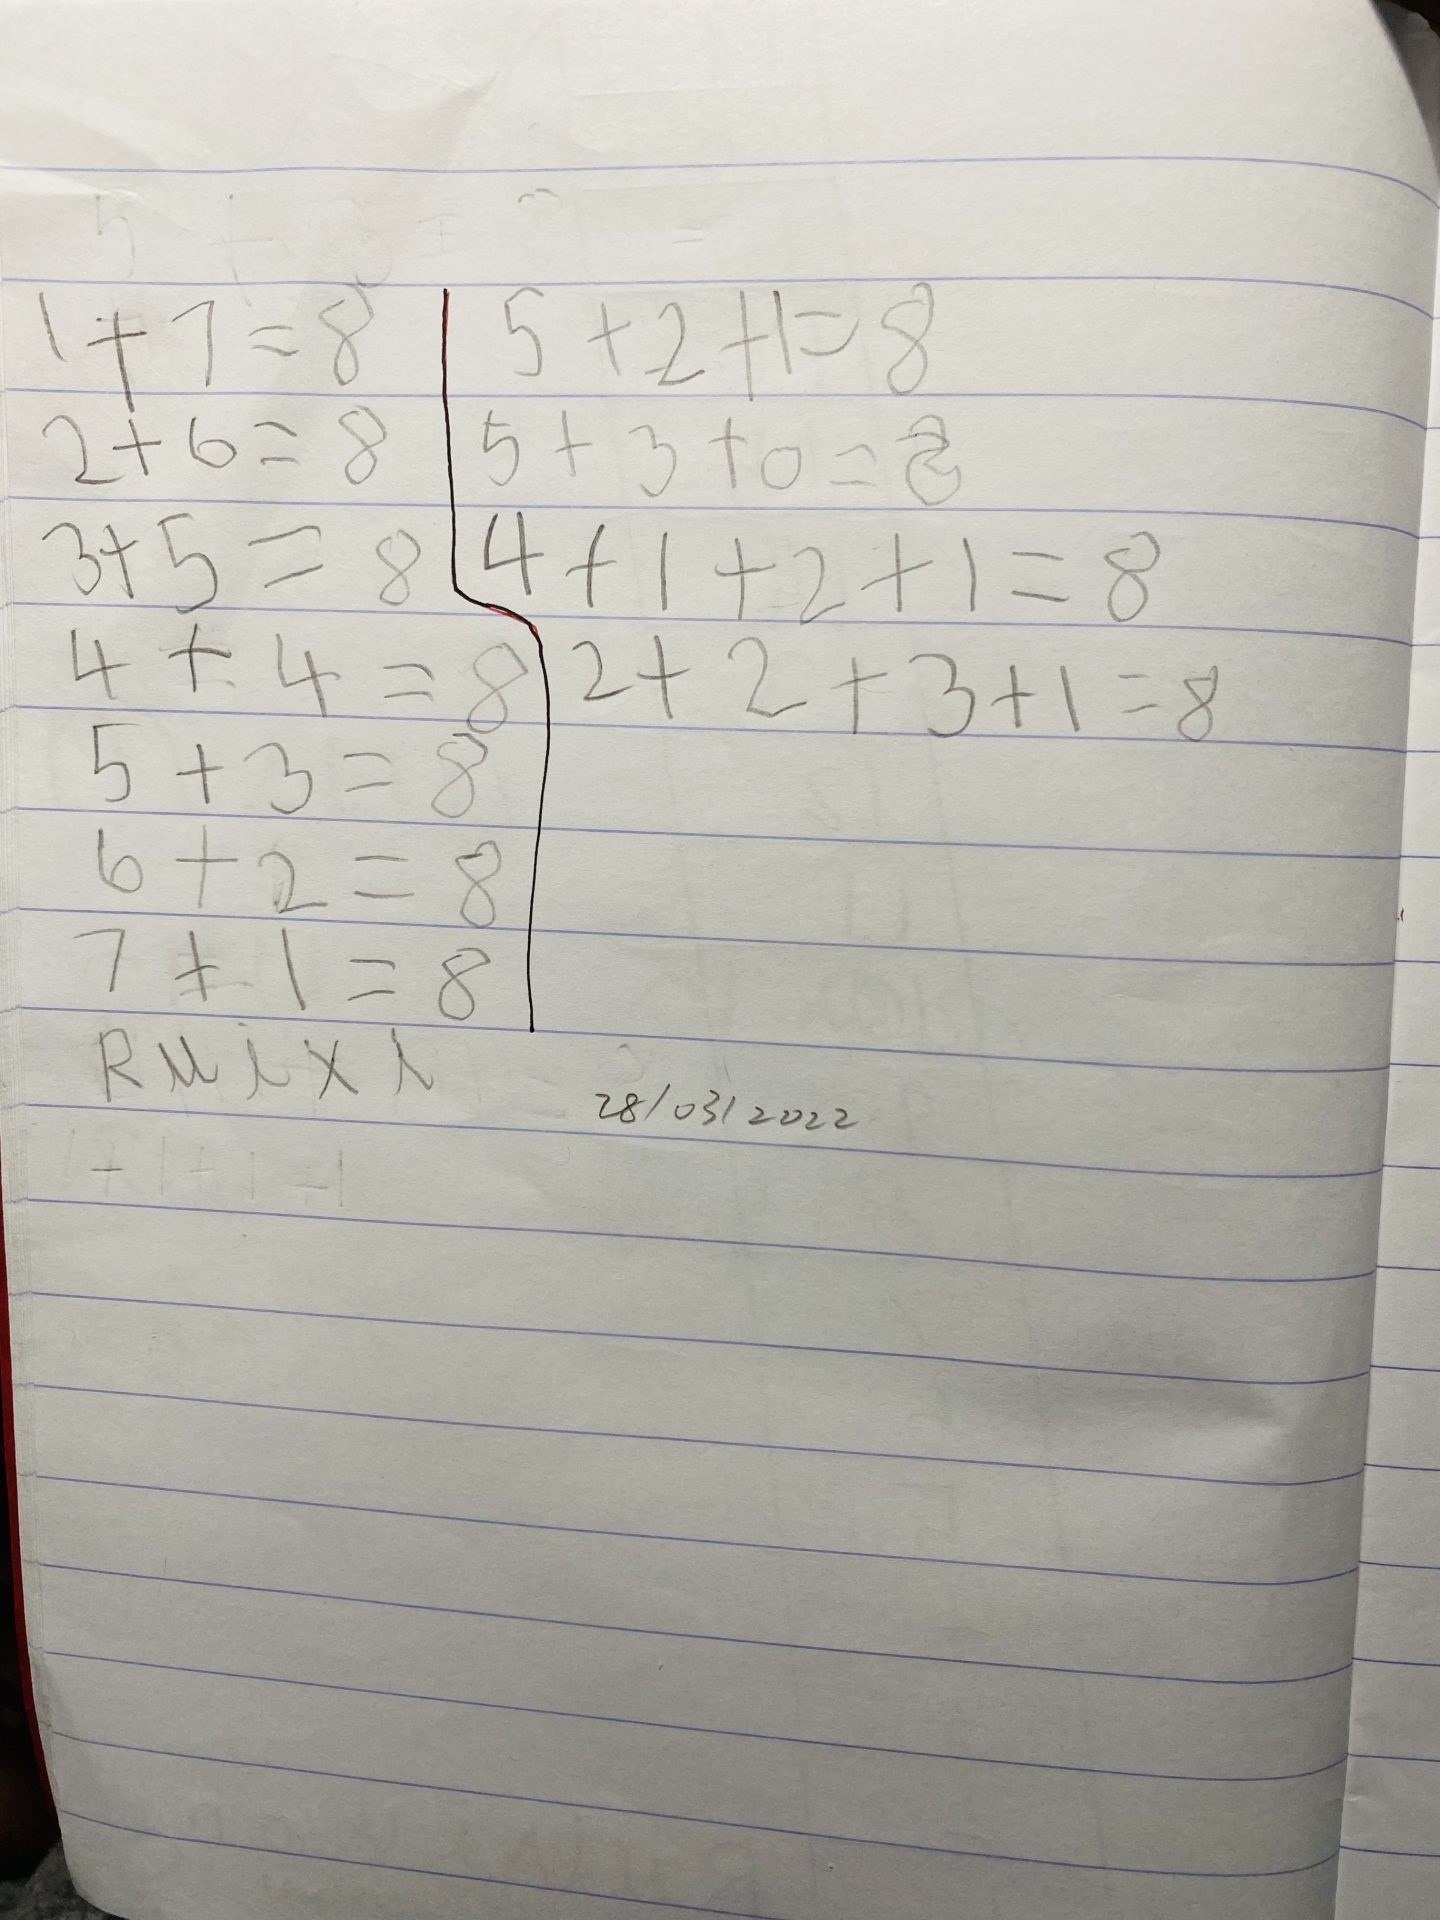 1+7=8
2+6=8
3+5=8
4+4=8
5+3=8
6+2=8
7+1=8
Ruixi
5+2+1=8
5+3+0=8
4+1+2+1=8
2+2+3+1=8
28/03/2022